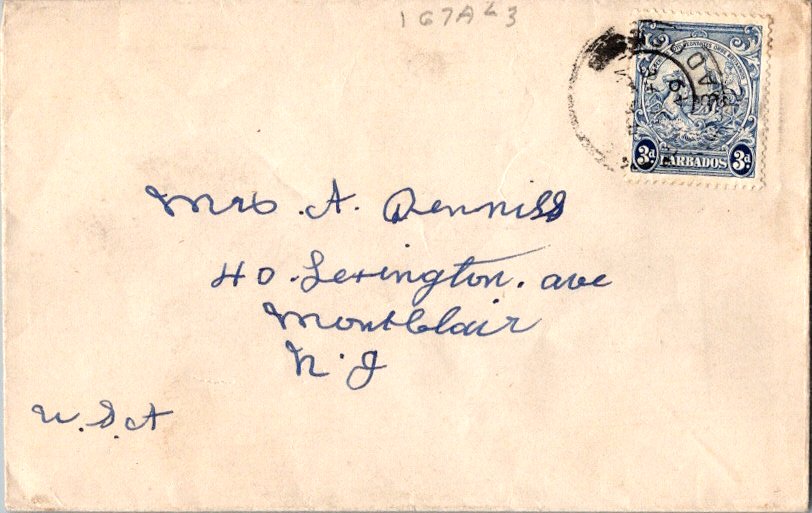 167A L3
3d BARBADOS 3d
Mrs. A. Denniss
40. Lexington. ave
Montblair
N. J
U. S. A